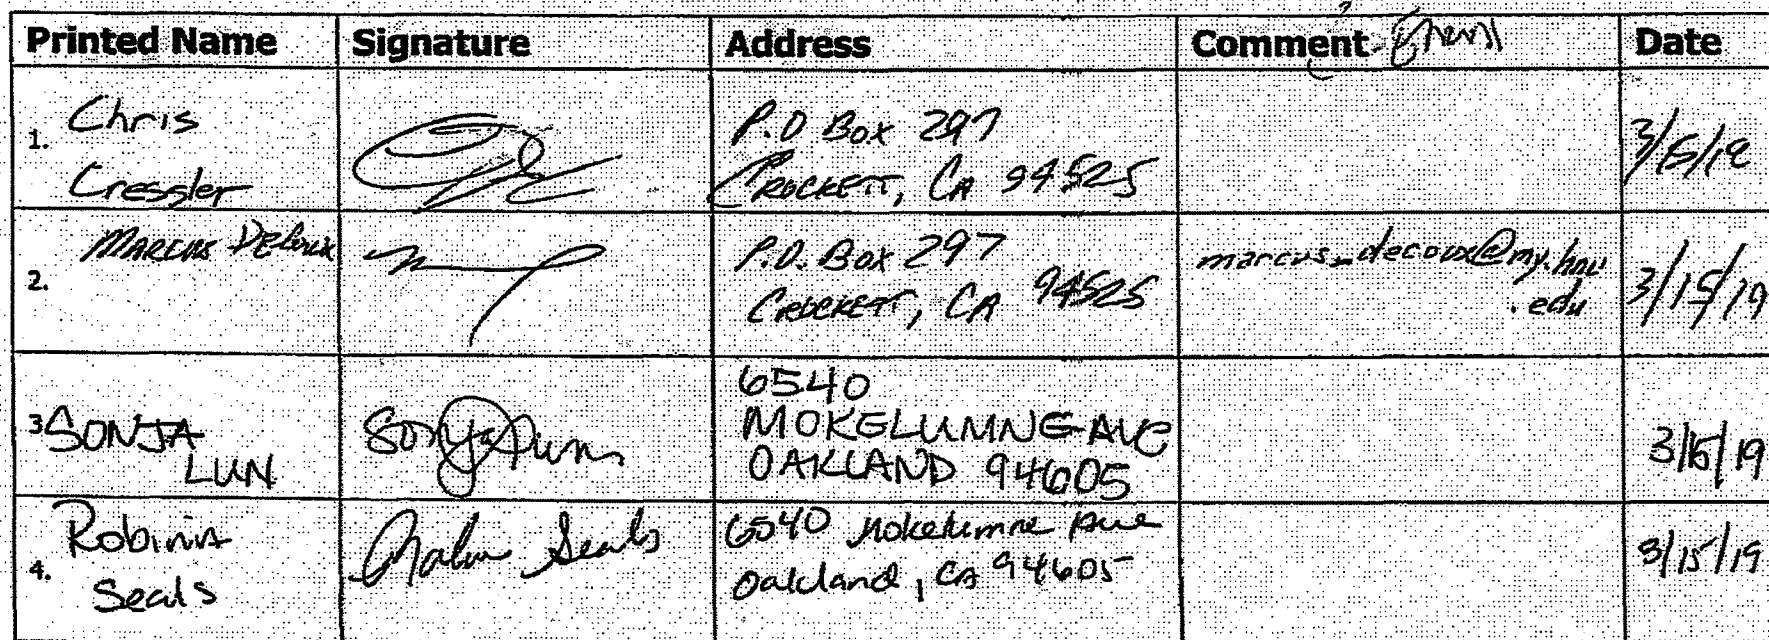 Printed Name Signature Address Comment Email Date
1. Chris Cressler P.O Box 297 CROCKETT, CA 94525 3/15/19
2. MARCUS DeCoux P.O. Box 297 CROCKETT, CA 94525 marcus_decoux@my.hnu.edu 3/15/19
3 SONJA LUN 6540 MOKELUMNE AVE OAKLAND 94605 3/15/19
4. Robinin Seals Seals 6540 Mokelumne Ave Oakland, CA 94605 3/15/19